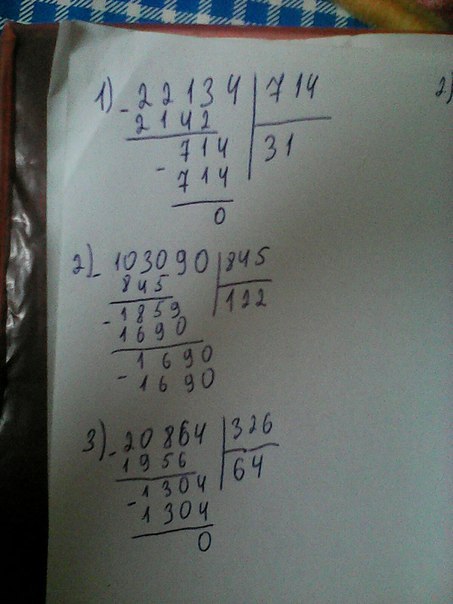 1) - 22134 | 714
2142 | 31
714
- 714
0
2) - 103090 | 845
845 | 122
- 1859
1690
1690
- 1690
3) - 20864 | 326
1956 | 64
1304
- 1304
0
2)